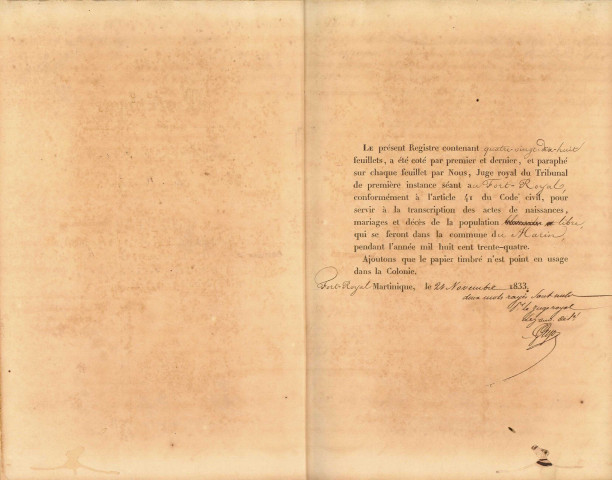 LE présent Registre contenant quatre-vingt-dix-huit
feuillets, a été coté par premier et dernier, et paraphé
sur chaque feuillet par Nous, Juge royal du Tribunal
de première instance séant au Fort-Royal,
conformément à l'article 41 du Code civil, pour
servir à la transcription des actes de naissances,
mariages et décès de la population libre,
qui se feront dans la commune du Marin,
pendant l'année mil huit cent trente-quatre.
Ajoutons que le papier timbré n'est point en usage
dans la Colonie.
Fort-Royal Martinique, le 24 Novembre 1833.
deux mots rayés sont nuls
Le juge royal